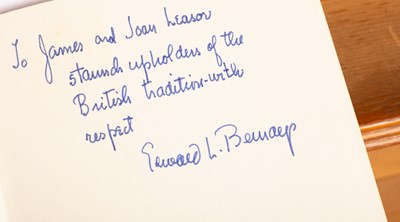 To James and Joan Leasor
staunch upholders of the
British tradition-with
respect
Edward L. Bernays